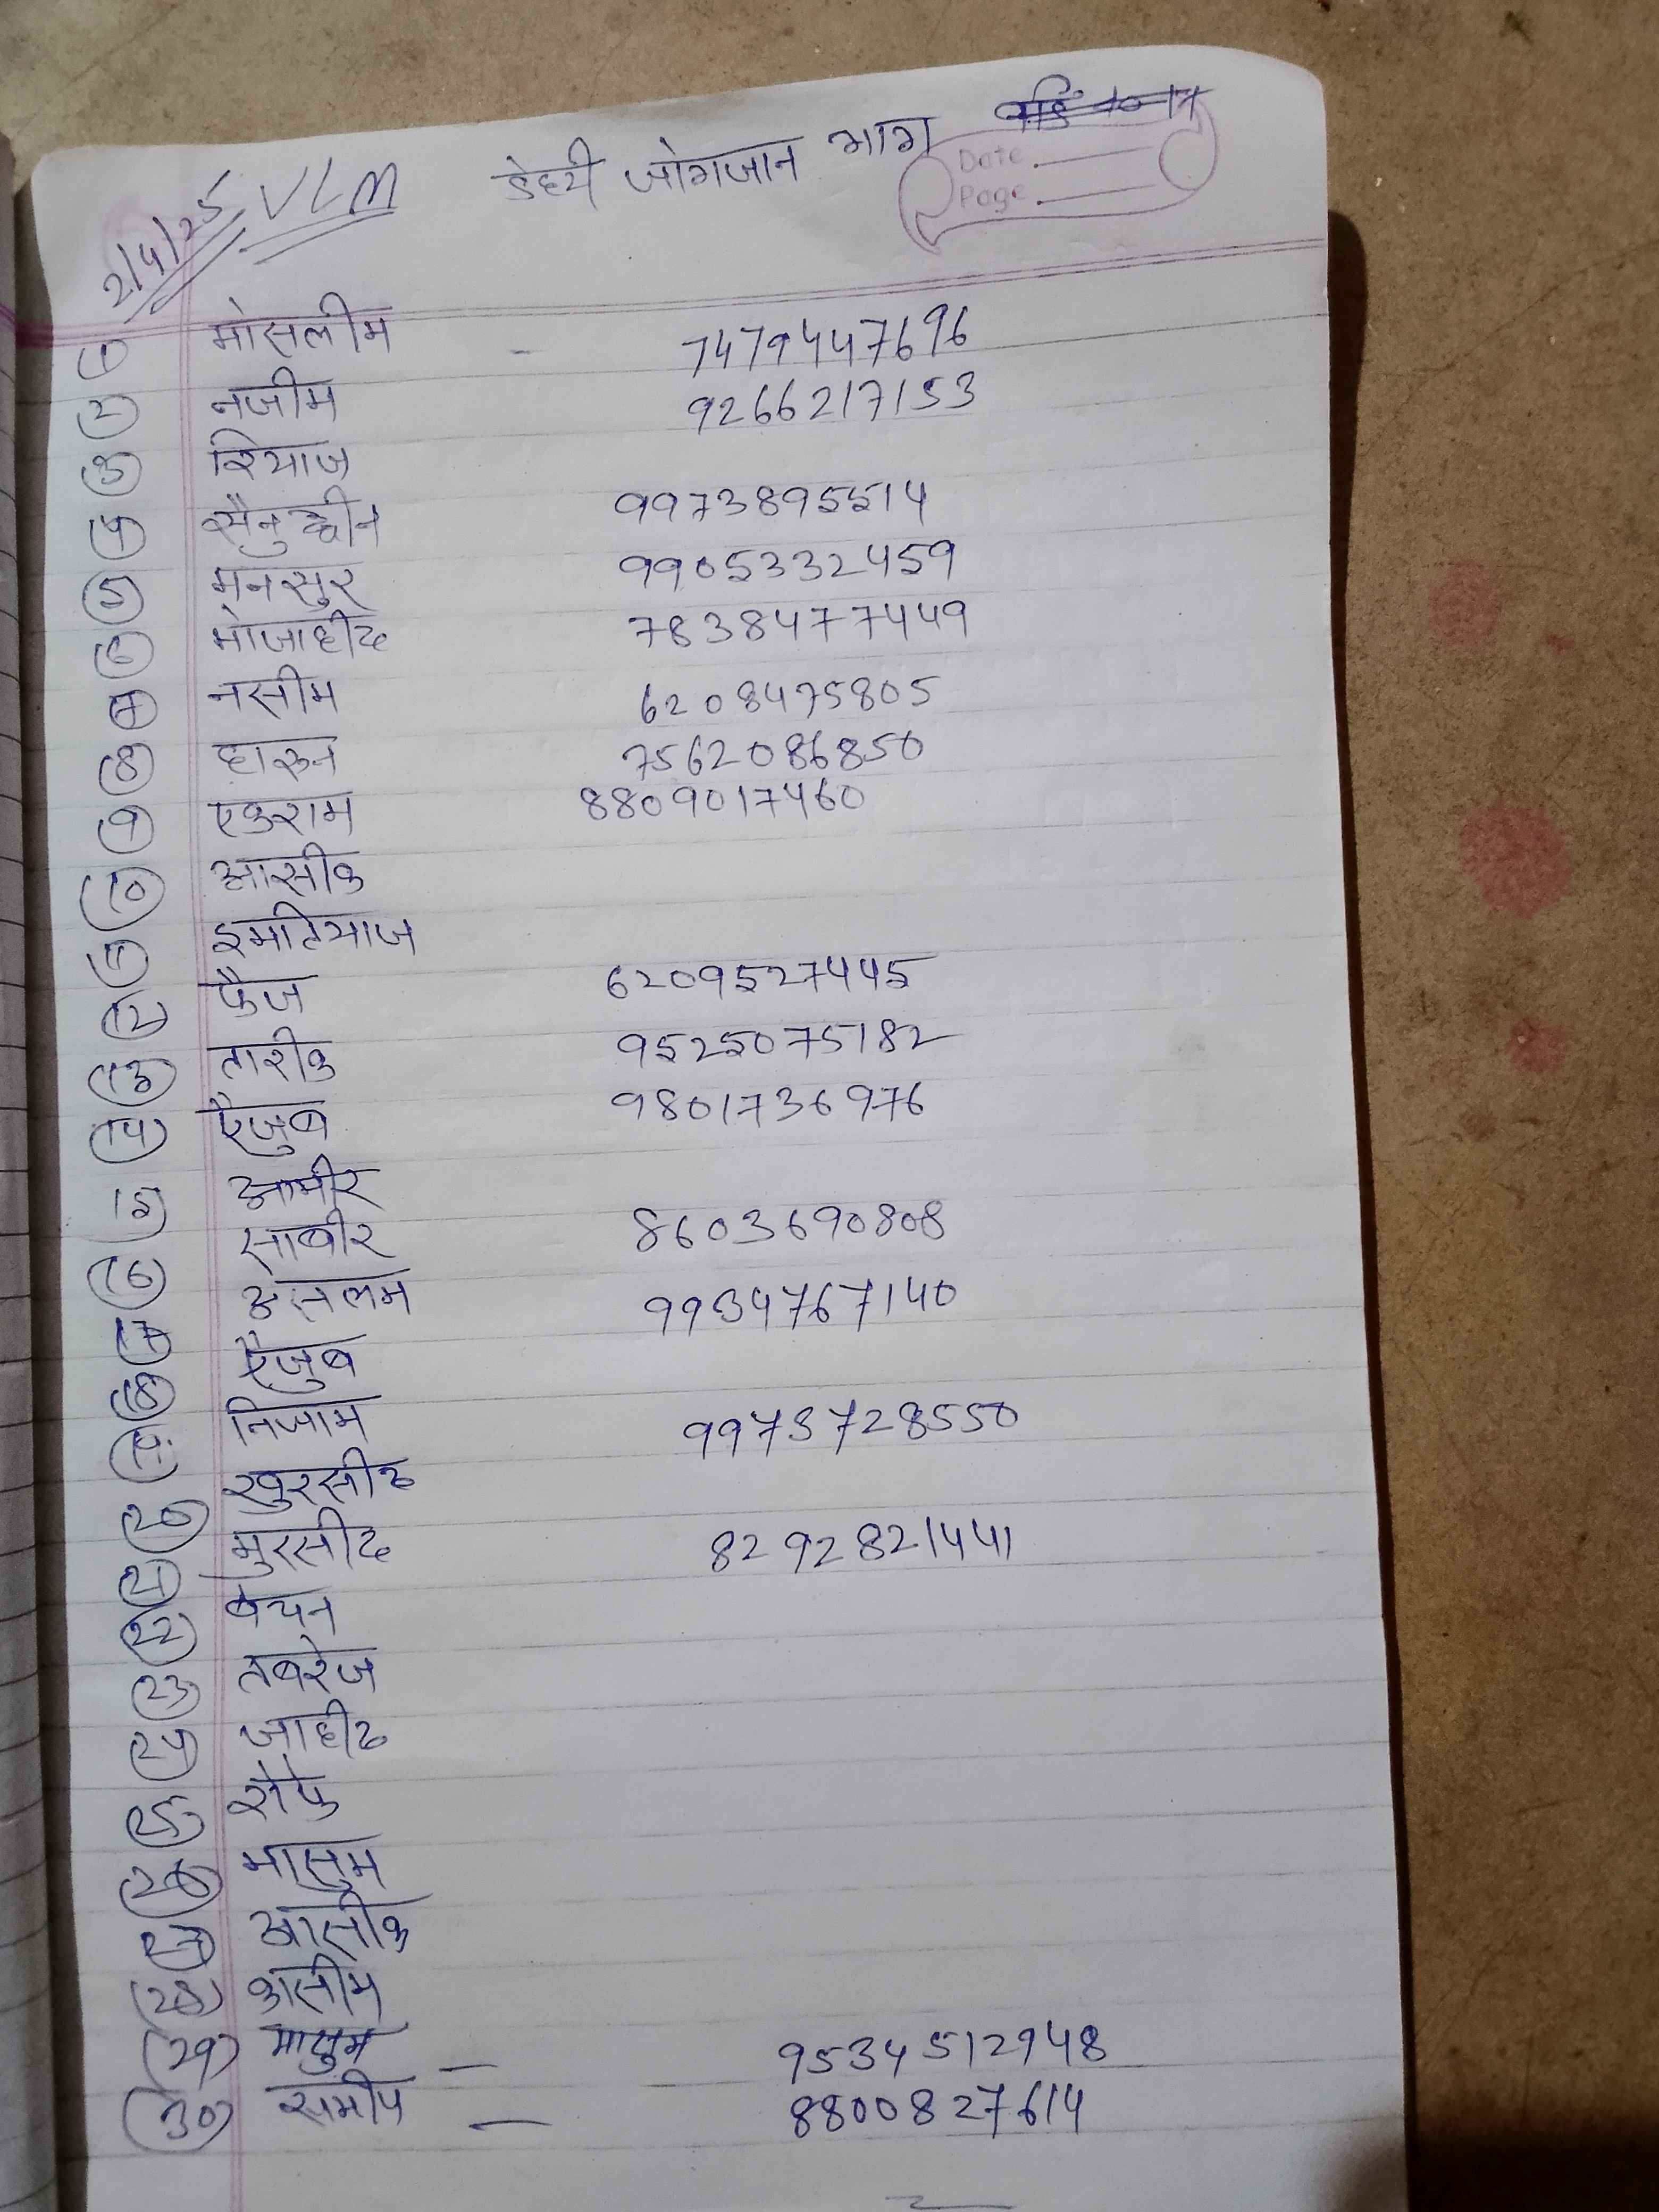 2/4/25 VLM डेह्टी जोगजान भाग
Date
Page
1 मोसलीम - 7479447696
2 नजीम 9266217153
3 रियाज
4 सैनुद्दीन 9973895514
5 मनसुर 9905332459
6 मोजाहीद 7838477449
7 नसीम 6208475805
8 हारुन 7562086850
9 एकराम 8809017460
10 आसीक
11 इमतियाज
12 फैज 6209527445
13 तारीक 9525075182
14 ऐजुब 9801736976
15 आमीर
16 साबीर 8603690808
17 असलम 9934767140
18 ऐजुब
19 निजाम 9973728550
20 खुरसीद
21 मुरसीद 8292821441
22 बेचन
23 तबरेज
24 जाहीद
25 सैफ
26 मासुम
27 आसीक
28 कासीम
29 मासुम - 9534512948
30 समीप - 8800827614